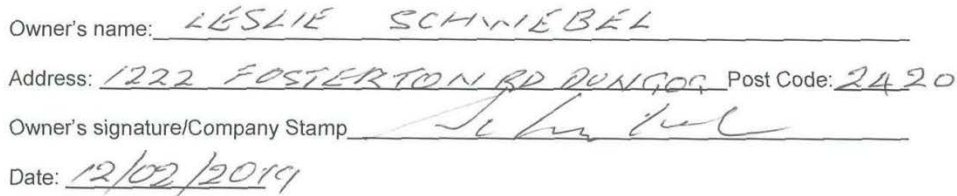 Owner's name: LESLIE SCHWIEBEL
Address: 1222 FOSTERTON RD DUNGOG Post Code: 2420
Owner's signature/Company Stamp
Date: 12/02/2019